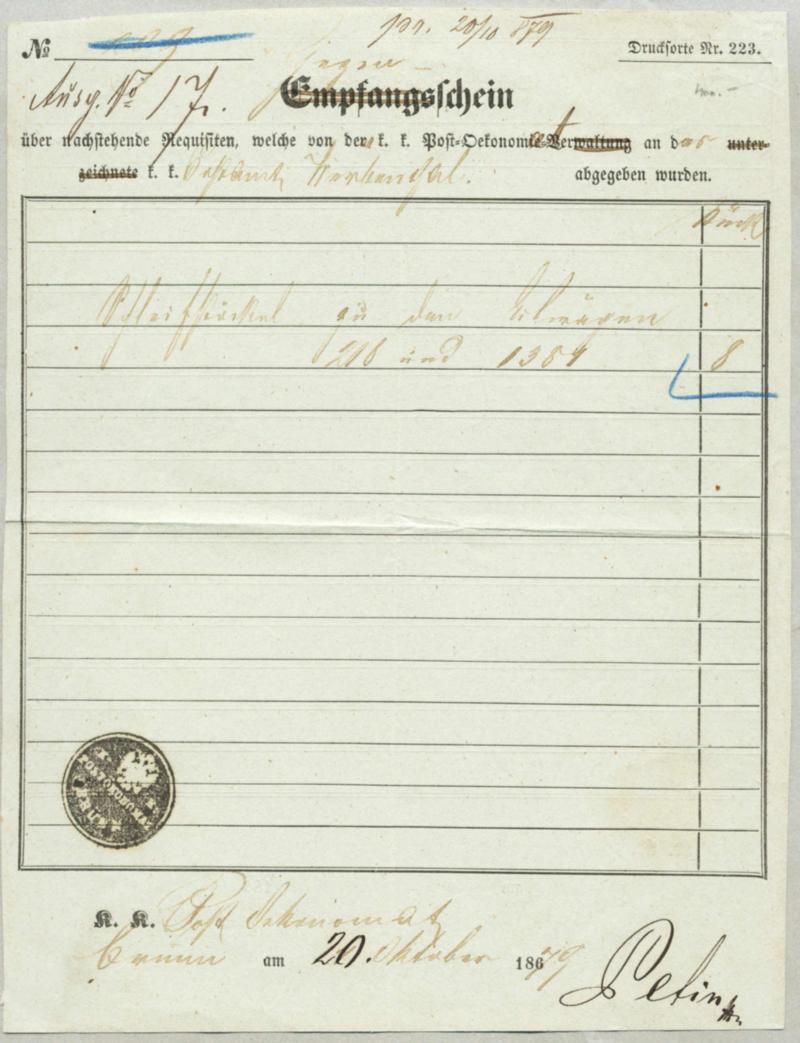 pr. 20/10 879
№
Drucksorte Nr. 223.
Gegen-
Ausg. № 17.
Empfangsschein
über nachstehende Requisiten, welche von der k. k. Post-Oekonomie-Verwaltung an das unter-
zeichnete k. k. Postamt Würbenthal. abgegeben wurden.
Stück
zu den
218 und 1384 8
K. K. Post Oekonomat
Brünn am 20. Oktober 1879